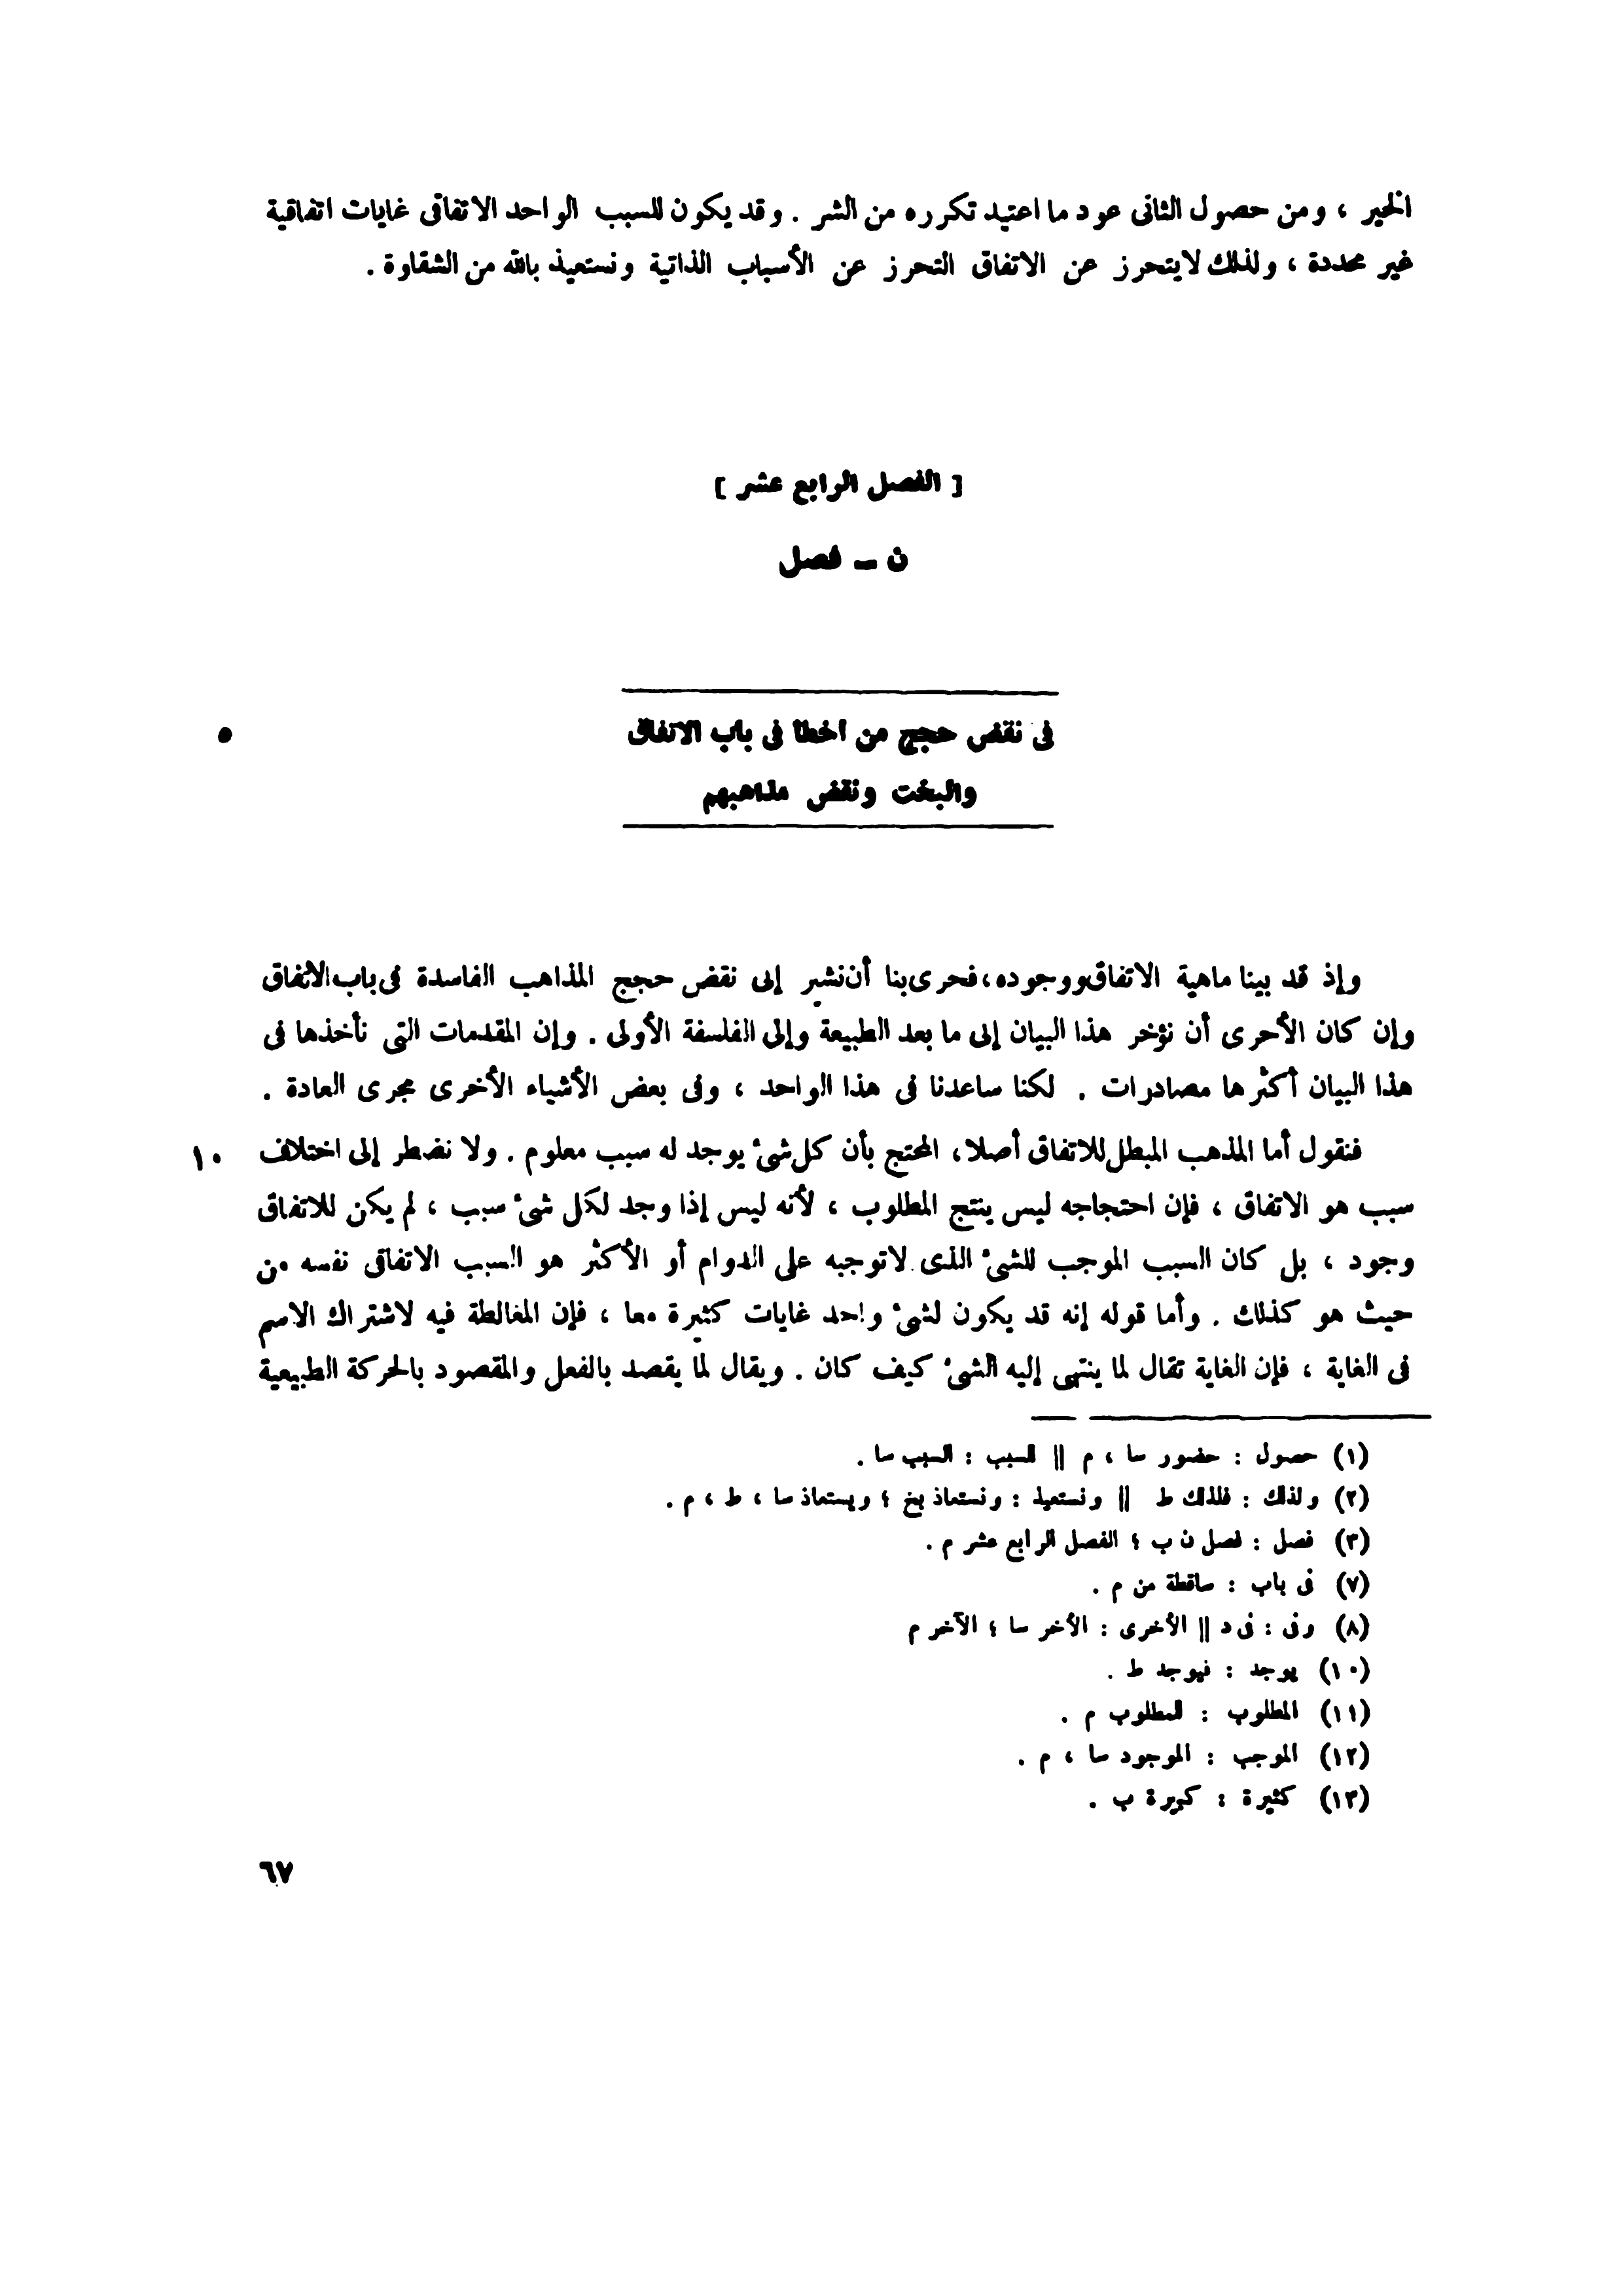 الخير ، ومن حصول الثانى عود ما اعتيد تكرره من الشر . وقد يكون للسبب الواحد الاتفاقى غايات اتفاقية
غير محددة ، ولذلك لايتحرز عن الاتفاق التحرز عن الأسباب الذاتية ونستعيذ بالله من الشقاوة .
[ الفصل الرابع عشر ]
ن – فصل
فى نقض حجج من اخطا فى باب الاتفاق
٥
والبخت ونقض مذاهبهم
وإذ قد بينا ماهية الاتفاق ووجوده ، فحرى بنا أن نشير إلى نقض حجج المذاهب الفاسدة فى باب الاتفاق
وإن كان الأحرى أن نؤخر هذا البيان إلى ما بعد الطبيعة وإلى الفلسفة الأولى . وإن المقدمات التى نأخذها فى
هذا البيان أكثرها مصادرات . لكنا ساعدنا فى هذا الواحد ، وفى بعض الأشياء الأخرى مجرى العادة .
فنقول أما المذهب المبطل للاتفاق أصلا ، المحتج بأن كل شىء يوجد له سبب معلوم . ولا نضطر إلى اختلاف
١٠
سبب هو الاتفاق ، فإن احتجاجه ليس ينتج المطلوب ، لأنه ليس إذا وجد لكل شىء سبب ، لم يكن للاتفاق
وجود ، بل كان السبب الموجب للشىء الذى لاتوجبه على الدوام أو الأكثر هو السبب الاتفاقى نفسه من
حيث هو كذلك . وأما قوله إنه قد يكون لشىء واحد غايات كثيرة معا ، فإن المغالطة فيه لاشتراك الاسم
فى الغاية ، فإن الغاية تقال لما ينتهى إليه الشىء كيف كان . ويقال لما يقصد بالفعل والمقصود بالحركة الطبيعية
(١) حصول : حضور سا ، م || للسبب : السبب سا .
(٢) ولذلك : فلذلك ط || ونستعيذ : ونستعاذ بخ ؛ ويستعاذ سا ، ط ، م .
(٣) فصل : فصل ن ب ؛ الفصل الرابع عشر م .
(٧) فى باب : ساقطة من م .
(٨) وفى : فى د || الأخرى : الأخر سا ؛ الآخر م
(١٠) يوجد : فيوجد ط .
(١١) المطلوب : المطلوب م .
(١٢) الموجب : الموجود سا ، م .
(١٣) كثيرة : كبيرة ب .
٦٧